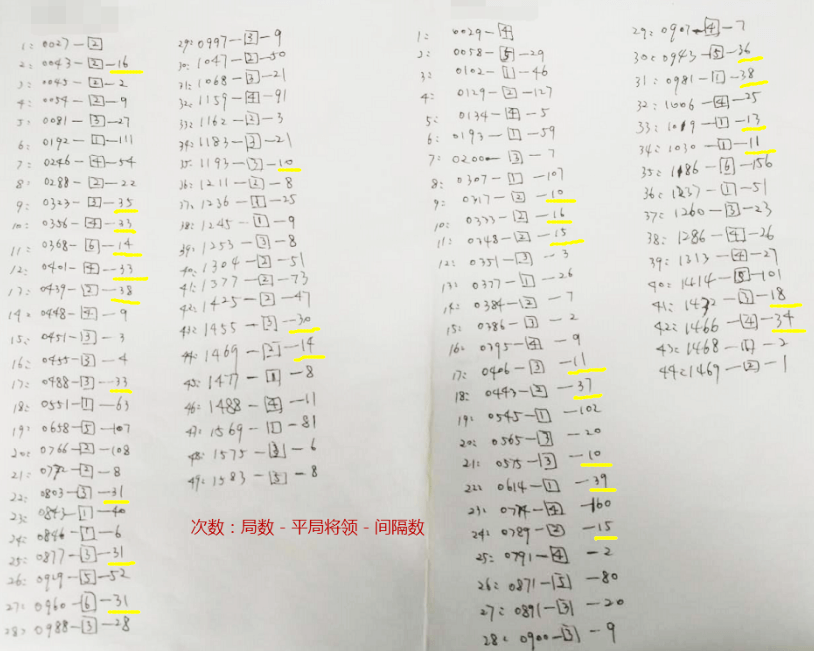 1: 0027-2
2: 0043-2-16
3: 0045-2-2
4: 0054-2-9
5: 0081-3-27
6: 0192-1-111
7: 0246-4-54
8: 0288-2-22
9: 0323-3-35
10: 0356-4-33
11: 0368-6-14
12: 0401-4-33
13: 0439-2-38
14: 0448-4-9
15: 0451-3-3
16: 0455-3-4
17: 0488-3-33
18: 0551-1-63
19: 0658-5-107
20: 0766-2-108
21: 0772-2-8
22: 0803-3-31
23: 0843-1-40
24: 0846-1-6
25: 0877-3-31
26: 0929-5-52
27: 0960-6-31
28: 0988-3-28
29: 0997-3-9
30: 1047-2-50
31: 1068-3-21
32: 1159-4-91
33: 1162-2-3
34: 1183-2-21
35: 1193-3-10
36: 1211-2-8
37: 1236-1-25
38: 1245-1-9
39: 1253-3-8
40: 1304-2-51
41: 1377-2-73
42: 1425-2-47
43: 1455-3-30
44: 1469-2-14
45: 1477-1-8
46: 1488-4-11
47: 1569-1-81
48: 1575-3-6
49: 1583-5-8
次数：局数 - 平局将领 - 间隔数
1: 0029-4
2: 0058-5-29
3: 0102-1-46
4: 0129-2-127
5: 0134-4-5
6: 0193-1-59
7: 0200-3-7
8: 0307-1-107
9: 0317-2-10
10: 0333-2-16
11: 0348-2-15
12: 0351-3-3
13: 0377-1-26
14: 0384-2-7
15: 0386-3-2
16: 0395-4-9
17: 0406-3-11
18: 0443-2-37
19: 0545-1-102
20: 0565-3-20
21: 0575-3-10
22: 0614-1-39
23: 0774-4-160
24: 0789-2-15
25: 0791-4-2
26: 0871-5-80
27: 0891-3-20
28: 0900-3-9
29: 0907-4-7
30: 0943-5-36
31: 0981-1-38
32: 1006-4-25
33: 1019-1-13
34: 1030-1-11
35: 1186-6-156
36: 1237-1-51
37: 1260-3-23
38: 1286-4-26
39: 1313-4-27
40: 1414-5-101
41: 1432-3-18
42: 1466-2-34
43: 1468-1-2
44: 1469-2-1